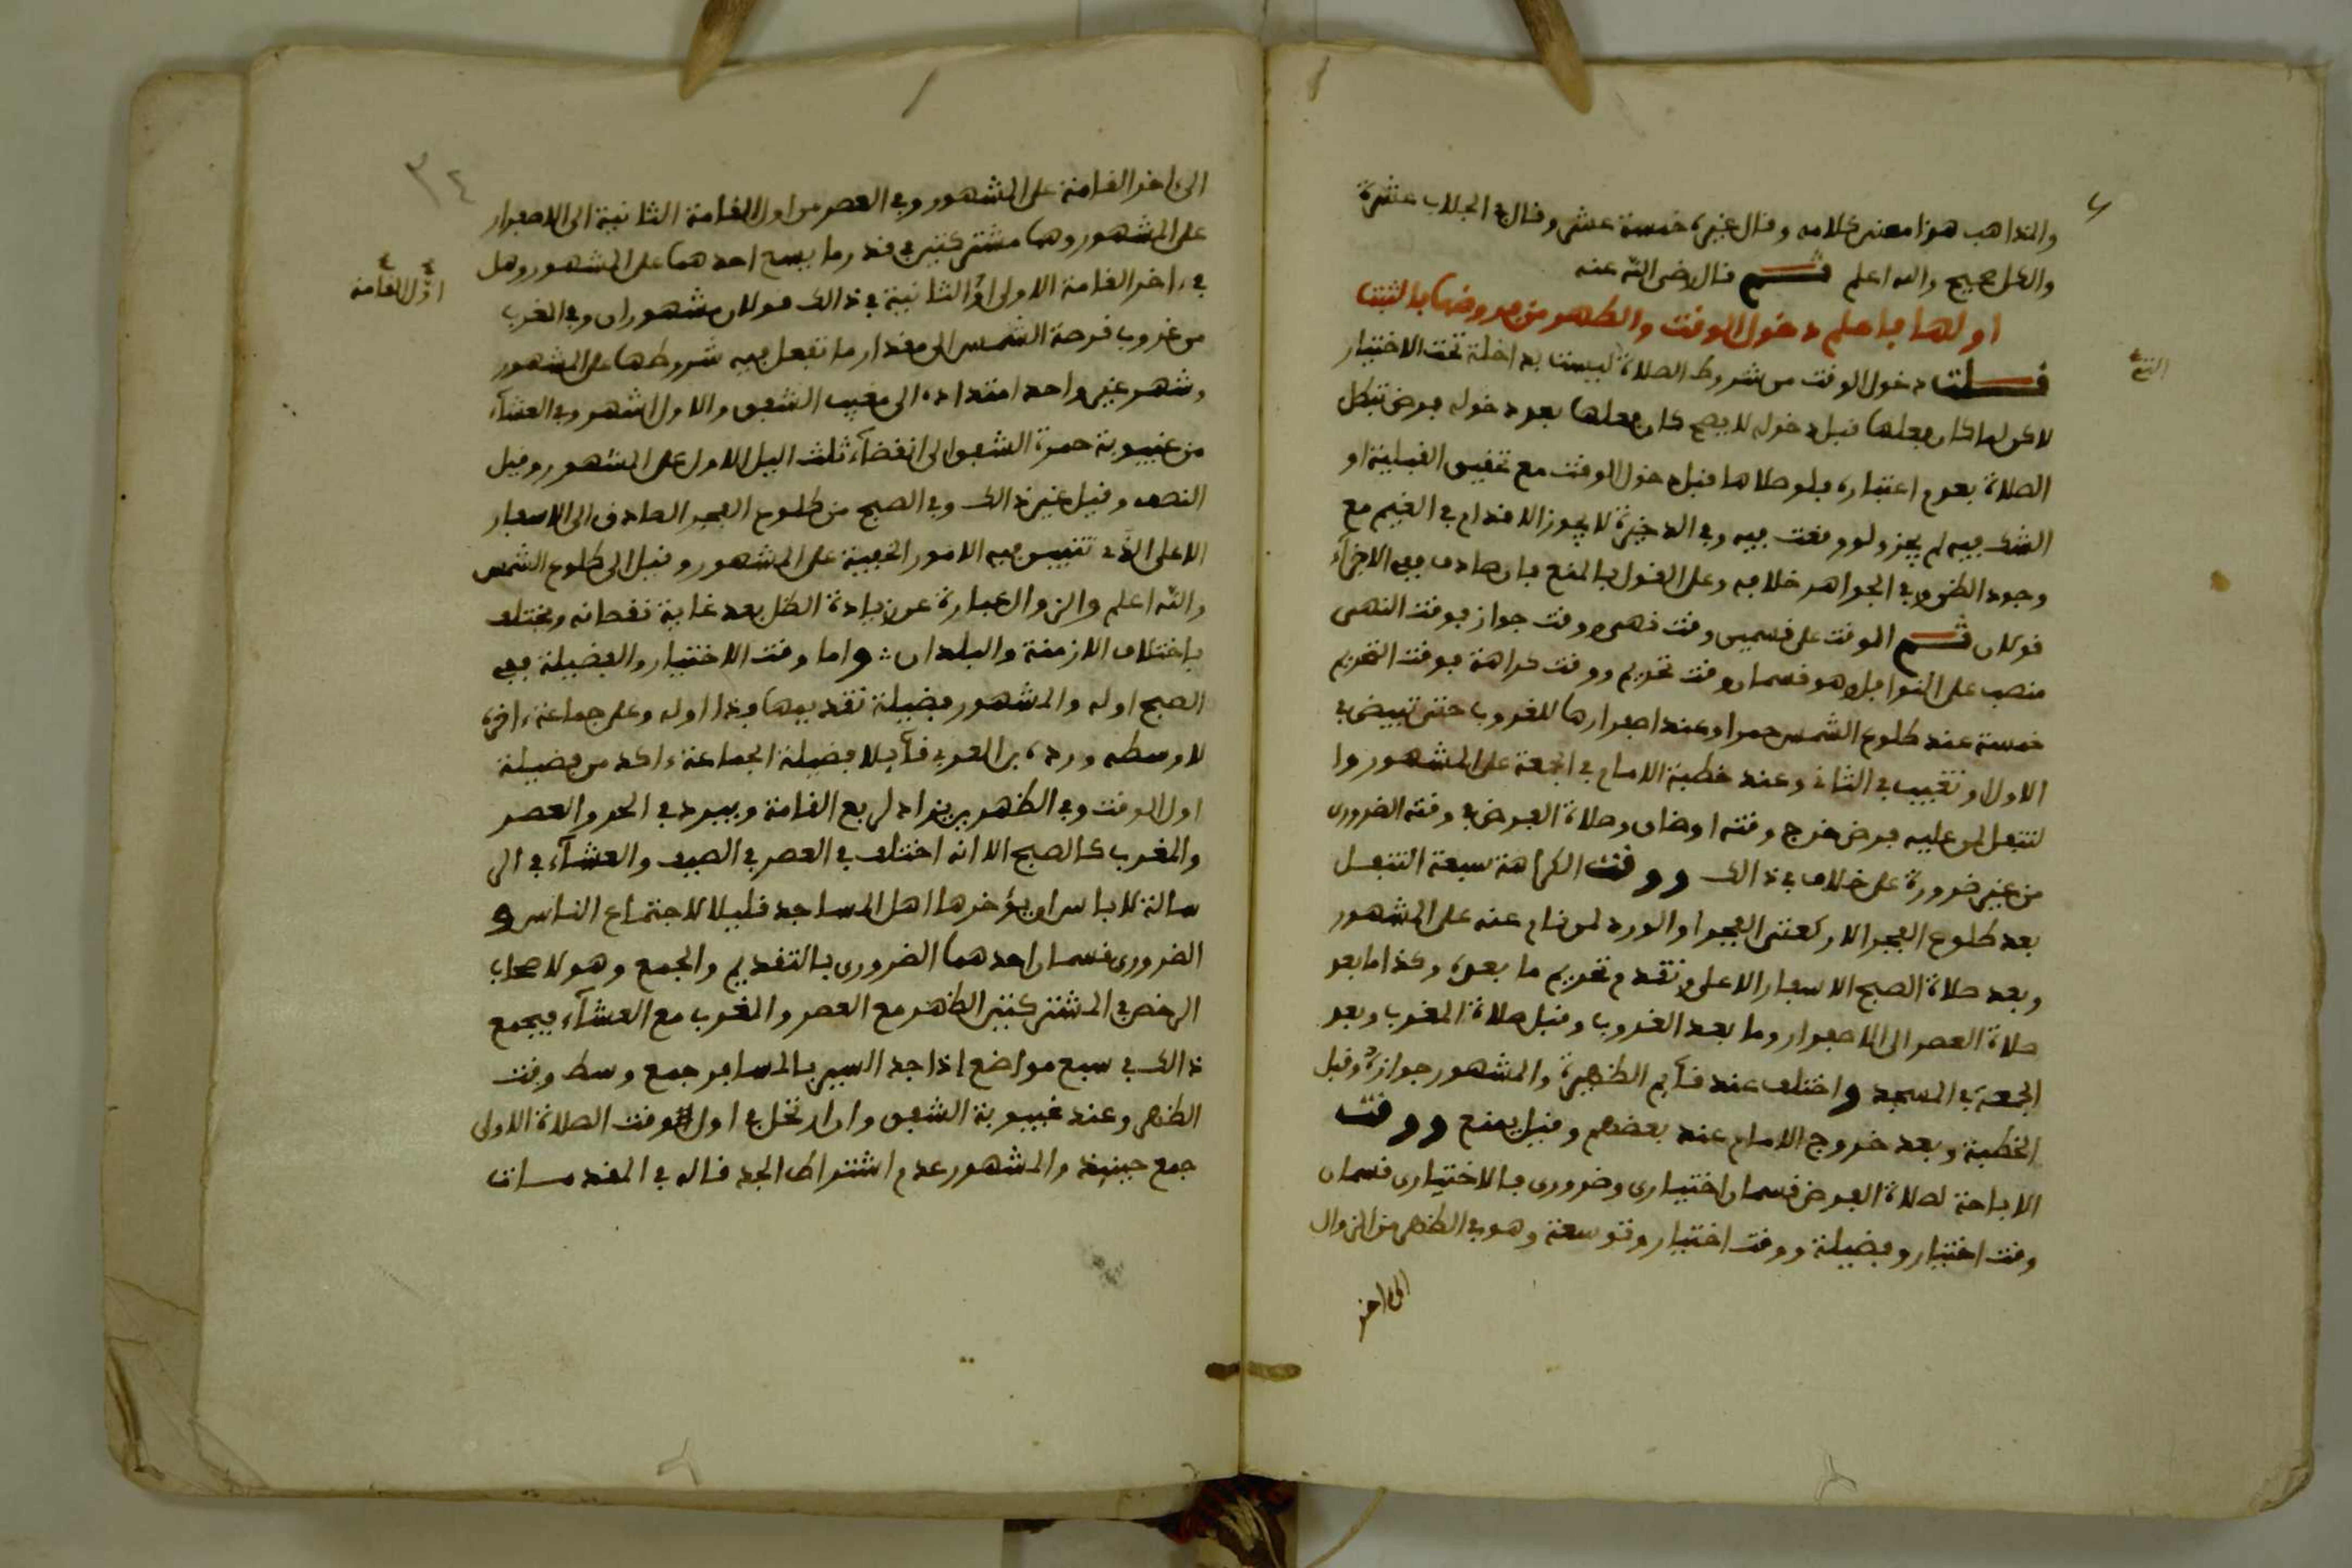 والمذاهب هذا معنى كلامه وقال غيره خمسة عشر وقال في الجلاب عشرة
والكل صحيح والله اعلم ثم قال رضي الله عنه
اولها فاعلم دخول الوقت والطهر من فروضها بالثبت
قلت دخول الوقت من شروط الصلاة ليست بداخلة تحت الاختيار
لاكن لما كان فعلها قبل دخوله لا يصح كان فعلها بعد دخوله فرض تبطل
الصلاة بعدم اعتباره فلو صلاها قبل دخول الوقت مع تحقيق القبلية او
الشك فيه لم يجز ولو وقعت فيه وفي الذخيرة لا يجوز الاقدام في الغيم مع
وجود الظن وفي الجواهر خلافه وعلى القول بالمنع فان صادف ففي الاجزاء
قولان ثم الوقت على قسمين وقت نهي ووقت جواز فوقت النهي
منصب على النوافل وهو قسمان وقت تحريم ووقت كراهة فوقت التحريم
خمسة عند طلوع الشمس حمرا وعند اصفرارها للغروب حتى تبيض في
الاول او تغيب في الثاني وعند خطبة الامام في الجمعة على المشهور وا
لتنفل لمن عليه فرض خرج وقته اوضاق وصلاة الفرض في وقته الضروري
من غير ضرورة على خلاف في ذالك ووقت الكراهة سبعة التنفل
بعد طلوع الفجر الا ركعتي الفجر او الورد لمن نام عنه على المشهور
وبعد صلاة الصبح الاسفار الاعلى وتقدم تحريم ما بعده وكذا ما بعد
صلاة العصر الى الاصفرار وما بعد الغروب وقبل صلاة المغرب وبعد
الجمعة في المسجد واختلف عند قآيم الظهيرة والمشهور جوازه وقبل
الخطبة وبعد خروج الامام عند بعضهم وقيل يمنع ووقت
الاباحة لصلاة الفرض قسمان اختياري وضروري فالاختياري قسمان
وقت اختيار وفضيلة ووقت اختيار وتوسعة وهو في الظهر من الزوال
الى ءاخر
٣٤
الى ءاخر القامة على المشهور وفي العصر من اول القامة الثانية الى الاصفرار
على المشهور وهما مشتركتين في قدر ما يسع احدهما على المشهور وهل
في ءاخر القامة الاولى او الثانية في ذالك قولان مشهوران وفي المغرب
اول القامة
من غروب قرصة الشمس الى مقدار ما تفعل فيه شروطها على المشهور
وشهر غير واحد امتداده الى مغيب الشفق والاول اشهر وفي العشآء
من غيبوبة حمرة الشفق الى انقضآء ثلث اليل الاول على المشهور وقيل
النصف وقيل غير ذالك وفي الصبح من طلوع الفجر الصادق الى الاسفار
الاعلى الذي تتبين فيه الامور الخفية على المشهور وقيل الى طلوع الشمس
والله اعلم والزوال عبارة عن زيادة الظل بعد غاية نقصانه ويختلف
باختلاف الازمنة والبلدان واما وقت الاختيار والفضيلة ففي
الصبح اوله والمشهور فضيلة تقديمها فذا اوله وعلى جماعة ءاخره
لاوسطه ورده بن العربي قآيلا فضيلة الجماعة ءاكد من فضيلة
اول الوقت وفي الظهر يزاد لربع القامة ويبرد في الحر والعصر
والمغرب كالصبح الا انه اختلف في العصر في الصيف والعشآء في الر
سالة لا باس ان يؤخرها اهل المساجد قليلا لاجتماع الناس و
الضروري قسمان احدهما الضروري بالتقديم والجمع وهو لاصحاب
الرخص في المشتركتين الظهر مع العصر والمغرب مع العشآء فيجمع
ذالك في سبع مواضع اذا جد السير بالمسافر جمع وسط وقت
الظهر وعند غيبوبة الشفق وان ارتحل في اول وقت الصلاة الاولى
جمع حينيذ والمشهور عدم اشتراط الجد قاله في المقدمات